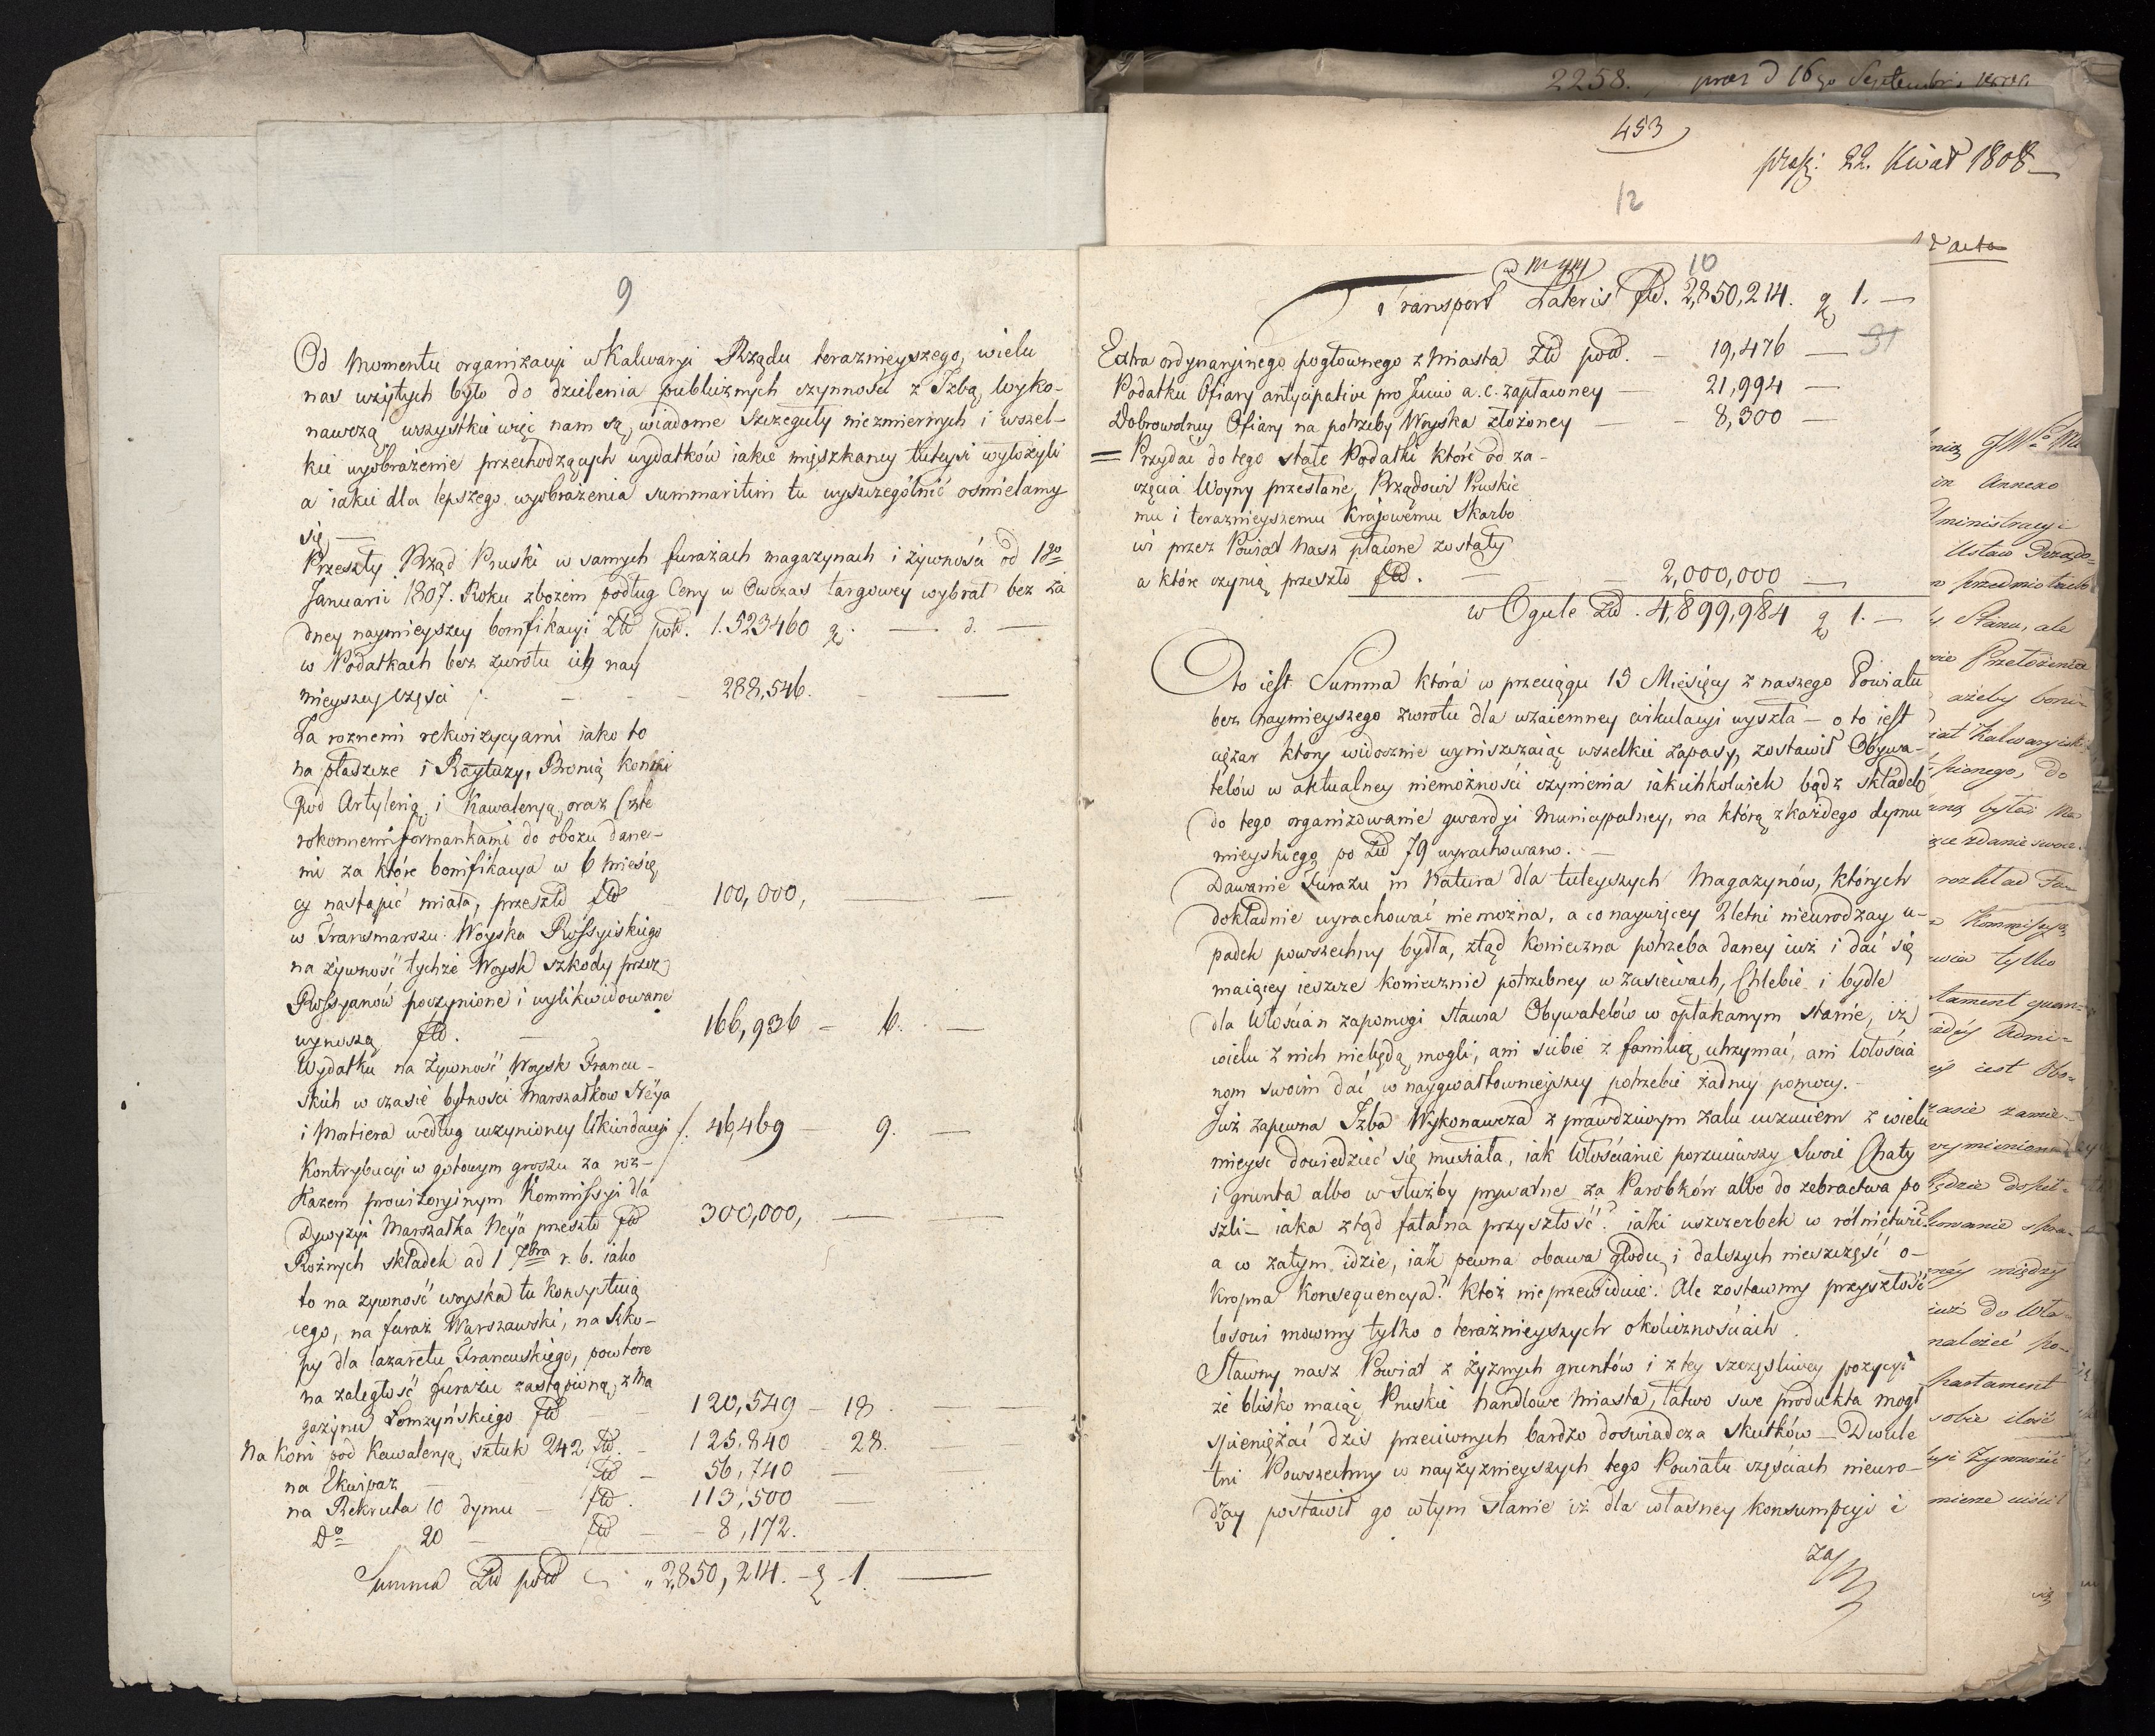 9
Od momentu organizacyi w Kalwaryi Rządu teraznieyszego, wielu
nas użytych było do dzielenia publicznych czynności z Izbą Wyko-
nawczą wszystkie więc nam są wiadome szczeguły niezmiernych i wszel-
kie wyobrażenie przechodzących wydatków iakie mięszkancy tuteysi wyłożyli
a iakie dla lepszego wyobrażenia summaritim tu wyszczególnić osmielamy
się —
Przeszły Rząd Pruski w samych furażach magazynach i żywności od 1go
Januarii 1807. Roku zbożem podług Ceny w Owczas targowey wybrał bez ża
dney naymieyszey bonifikacyi Złł pol. 1.523460 g. — d. —
w Podatkach bez zwrotu ich nay
mieyszey części — 288,546. —
Za roznemi rekwizycyami iako to
na płaszcze i Raytuzy, Bronią konmi
pod Artyleryą i Kawaleryą oraz Czte
rokonnemi formankami do obozu dane-
mi za które bonifikacya w 6 miesię
cy nastąpić miała, przeszło fld 100,000, —
w Transmarszu Woyska Rossyiskiego
na żywność tychże Woysk szkody przez
Rossyanów poczynione i wylikwidowane
wynoszą fld. 166,936 — 6. —
Wydatku na żywność Woysk Francu-
skich w czasie bytności Marszałkow Neÿa
i Mortiera według uczynioney likwidacyi 46,469 — 9. —
Kontrybucyi w gotowym groszu za roz-
kazem prowizoryinym Kommissyi dla
Dywyzyi Marszałka Neÿa przeszło fld 300,000, —
Rożnych składek ad 1 7bra r. b. iako
to na żywność woyska tu konsystuią
cego, na furaż Warszawski, na Sko-
py dla lazaretu Francuskiego, powtore
na zaległość furażu zastąpioną z Ma
gazynu Łomzyńskiego fld 120,549 — 18. —
Na koni pod kawaleryą sztuk 242 fld. — 125.840 — 28. —
na Ekwipaz — fld — 56,740 —
na Rekruta 10 dymu — fld. 113,500 —
Do 20 — fld — 8,172.
Summa Złł pol 2,850,214. — g 1. —
2258. praes d 16go Septembris
453
praes: 22. Kwiet 1808
12
10
Transport Lateris fld. 2,850,214. g 1. —
Extra ordynaryinego pogłownego z Miasta Złł pol. — 19,476 — 31
Podatku Ofiary antycipative pro Junio a. c. zapłaconey — 21,994 —
Dobrowolney Ofiary na potrzeby Woyska złożoney — 8,300 —
= Przydać do tego stałe Podatki które od za-
częcia Woyny przeszłane, Rządowi Pruskie
mu i teraznieyszemu Krajowemu Skarbo
wi przez Powiat Nasz płacone zostały
a które czynią przeszło fld. — 2,000,000 —
w Ogule Złł. 4,899,984 g 1. —
Oto iest Summa która w przeciągu 15 Miesięcy z naszego Powiatu
bez naymieyszego zwrotu dla wzaiemney cirkulacyi wyszła — oto iest
ciężar ktory widocznie wyniszczaiąc wszelkie zapasy, zostawił Obywa-
telów w aktualney niemożności czynienia iakichkolwiek bądz składek
do tego organizowanie gwardyi Municypalney, na którą z każdego dymu
mieyskiego po Złł 79 wyrachowano. —
Dawanie Furażu in Natura dla tuteyszych Magazynów, których
dokładnie wyrachować nie można, a co naywięcey 2letni nieurodzay u-
padek powszechny bydła, ztąd konieczna potrzeba daney iuż i dać się
maiącey ieszcze koniecznie potrzebney w zasiewach, Chlebie i bydle
dla Włościan zapomogi stawia Obywatelów w opłakanym stanie, iż
wielu z nich niebędą mogli, ani siebie z familią utrzymać, ani Włościa
nom swoim dać w naygwałtownieyszey potrzebie żadney pomocy. —
Już zapewna Izba Wykonawcza z prawdziwym żalu uczuciem z wielu
mieysc dowiedzieć się musiała, iak Włościanie porzuciwszy Swoie Chaty
i grunta albo w służby prywatne za Parobków albo do żebractwa po
szli — iaka ztąd fatalna przyszłość? iaki uszczerbek w rólnictwie
a co zatym idzie, iak pewna obawa głodu i dalszych nieszczęść o-
kropna Konsequencya? któż nie przewiduie? Ale zostawmy przyszłość
losowi mowmy tylko o teraznieyszych okolicznościach.
Sławny nasz Powiat z żyznych gruntów i z tey szczęśliwey pozycyi
że blisko maiąc Pruskie handlowe Miasta, łatwo swe produkta mogł
spieniężać dziś przeciwnych bardzo doświadcza skutków — Dwule
tni Powszechny w nayżyznieyszych tego Powiatu częściach nieuro-
dzay postawił go w tym stanie iż dla własney konsumpcyi i
za
in Annexo
Ustaw
Stanu, ale
ażeby
pionego, do
rozkład
tylko
iest
między
iuż do
należeć po-
sobie ilość
się